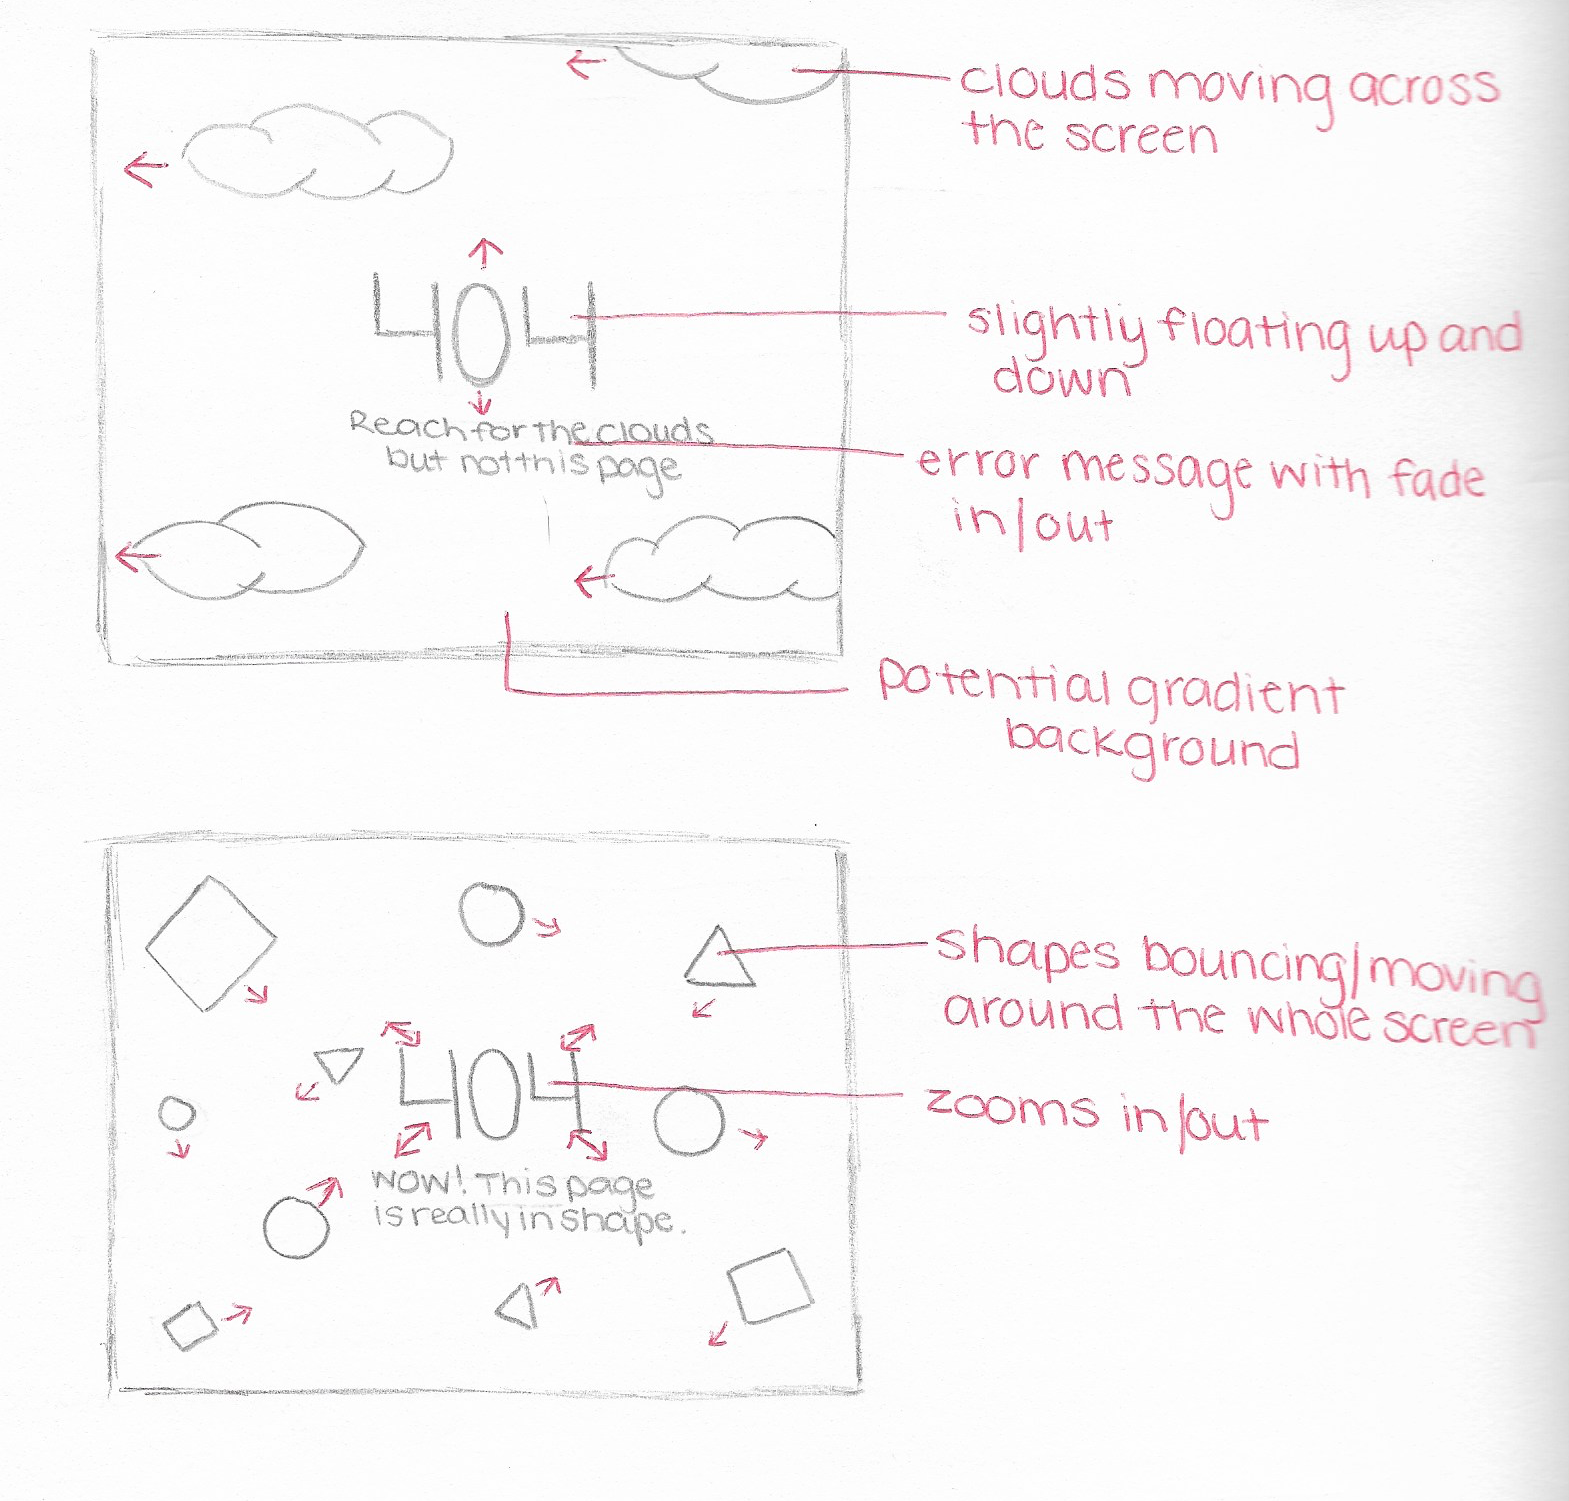 clouds moving across
the screen
404
slightly floating up and
down
Reach for the clouds
but not this page
error message with fade
in/out
potential gradient
background
shapes bouncing/moving
around the whole screen
404
zooms in/out
WOW! This page
is really in shape.